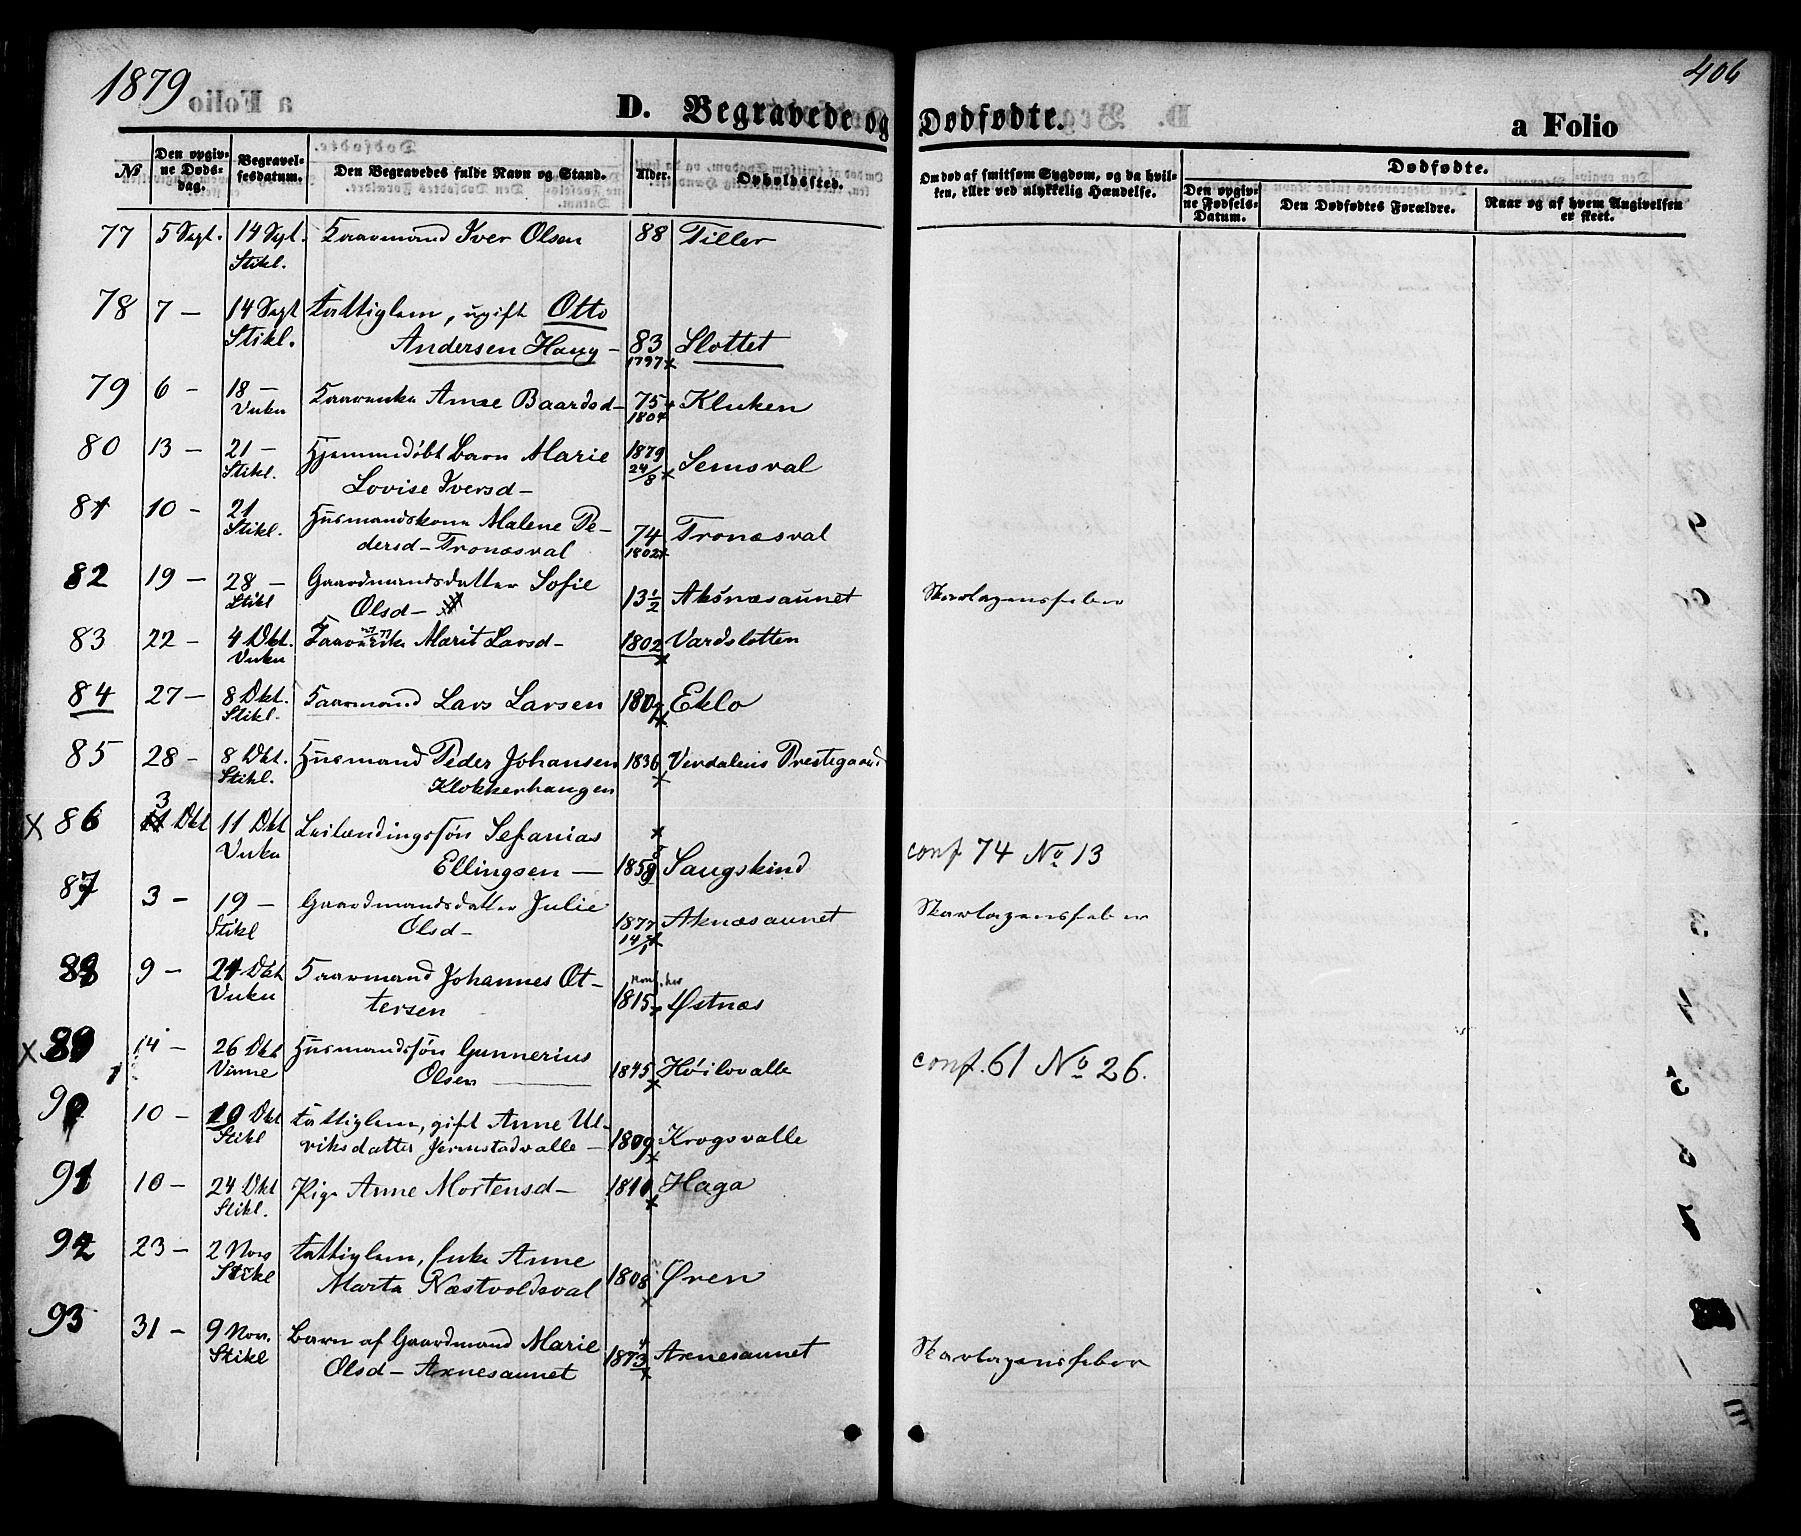 1879
406
D. Begravede og Dødfødte.
a Folio
No
Den opgivne Døds-dag.
Begravelsesdatum.
Den Begravedes fulde Navn og Stand.
Alder.
Opholdssted.
Om død af smitsom Sygdom, og da hvilken, eller ved ulykkelig Hændelse.
Dødfødte.
Den opgivne Fødsels-Datum.
Den Dødfødtes Forældre.
Naar og af hvem Angivelsen er skeet.
77 5 Sept. 14 Sept. Kaarmand Iver Olsen 88 Tiller
Stikl.
78 7 – 14 Sept Fattiglem, ugift Otto
Stikl. Andersen Haug – 83 Slottet
1797
79 6 – 18 – Kaarenke Anne Baardsd – 75 Kluken
Vuku 1804
80 13 – 21 – Hjemmedøbt Barn Marie 1879 Semsval
Stikl. Lovise Iversd – 24/8
81 10 – 21 Husmandskone Malene Pe-
Stikl. dersd – Tronæsval 74 Tronæsval
1802
82 19 – 28 – Gaardmandsdatter Sofie
Stikl Olsd – 13½ Aksnæsaunet Skarlagensfeber
83 22 – 4 Okt. Kaarenke Marit Larsd – 1802 Vardslotten
Vuku
84 27 – 8 Okt. Kaarmand Lars Larsen Eklo
Stikl.
85 28 – 8 Okt. Husmand Peder Johansen 1836 Verdalens Prestegaard
Stikl. Klokkerhaugen
x 86 3 Okt 11 Okt Leilændingssøn Sefanias
Vuku Ellingsen – Saugskind conf 74 No 13
87 3 – 19 – Gaardmandsdatter Julie
Stikl Olsd – 1877 Aknæsaunet Skarlagensfeber
88 9 – Okt Kaarmand Johannes Ot-
Vuku tersen 1815 Østnæs
x 89 14 – 26 Okt Husmandssøn Gunnerius
Vinne Olsen 1845 Høilovalle conf. 61 No 26.
90 10 – Okt Fattiglem, gift Anne Ul-
Stikl riksdatter Jermstadvalle – 1809 Krogsvalle
91 10 – 24 Okt Pige Anne Mortensd – Haga
Stikl.
92 23 – 2 Nov Fattiglem, Enke Anne
Stikl Marta Næstvoldsval 1808 Øren
93 31 – 9 Nov. Barn af Gaardmand Marie
Stikl Olsd – Axnesaunet 1873 Axnesaunet Skarlagensfeber